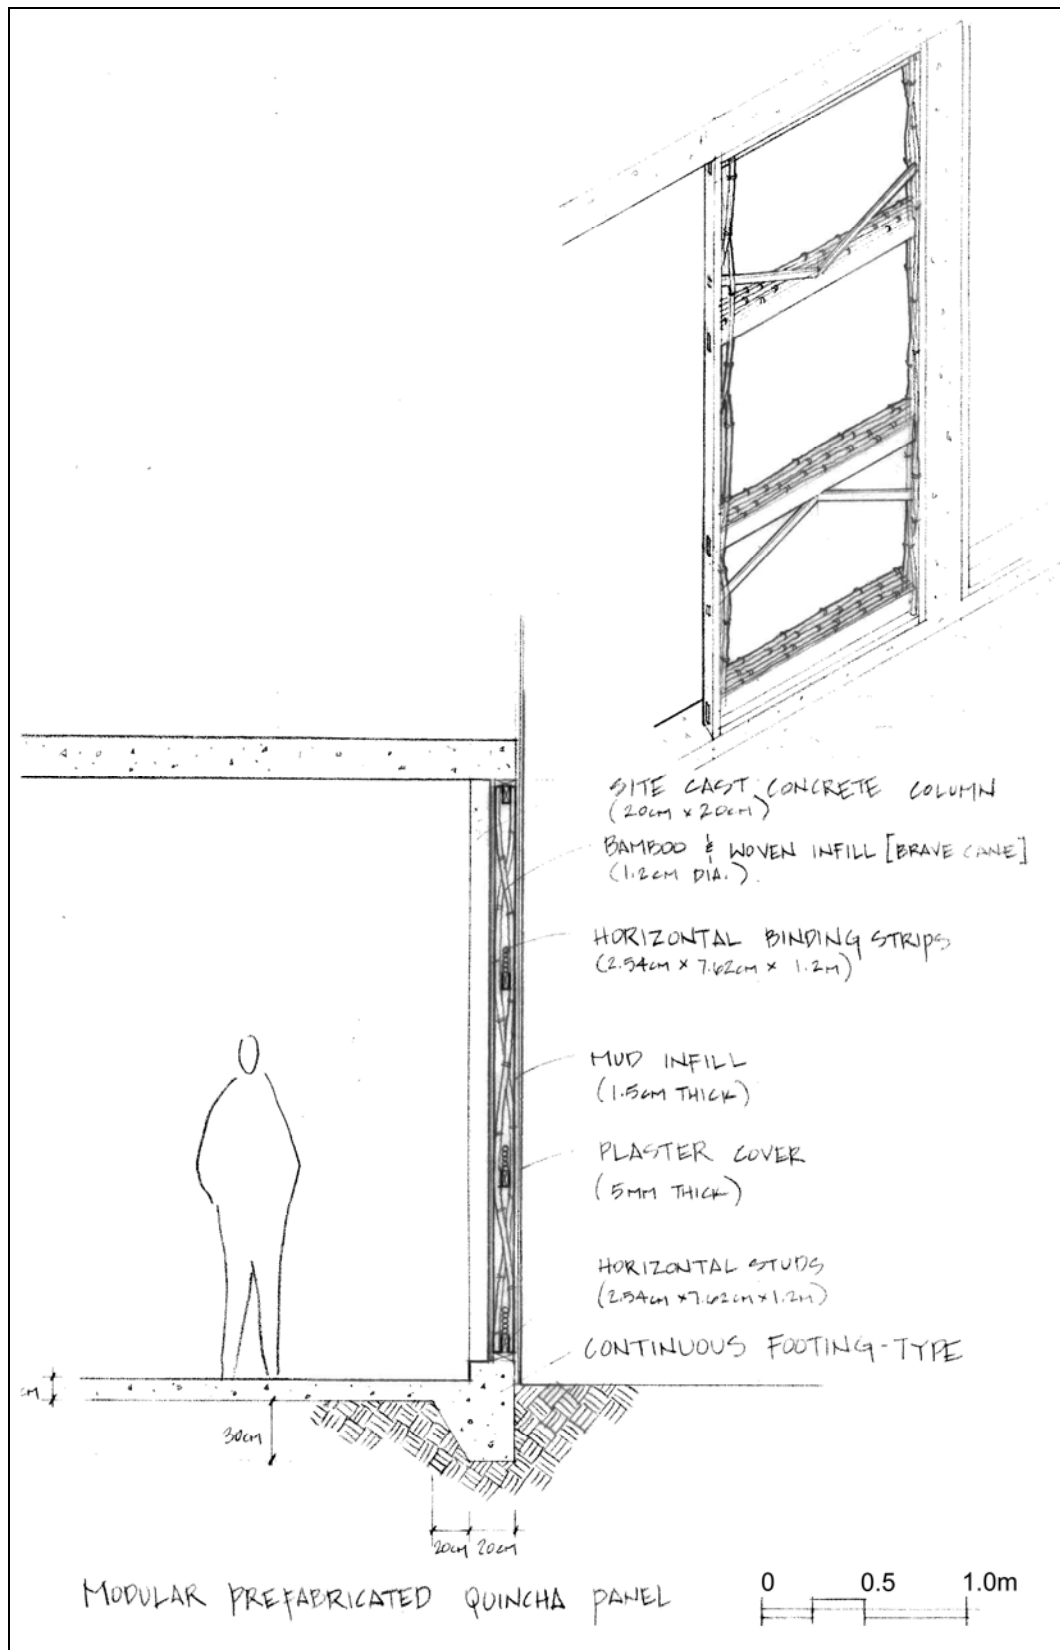 SITE CAST CONCRETE COLUMN
(20cm x 20cm)
BAMBOO & WOVEN INFILL [BRAVE CANE]
(1.2cm DIA.)
HORIZONTAL BINDING STRIPS
(2.54cm x 7.62cm x 1.2m)
MUD INFILL
(1.5cm THICK)
PLASTER COVER
(5mm THICK)
HORIZONTAL STUDS
(2.54cm x 7.62cm x 1.2m)
CONTINUOUS FOOTING-TYPE
cm
30cm
20cm 20cm
MODULAR PREFABRICATED QUINCHA PANEL
0 0.5 1.0m